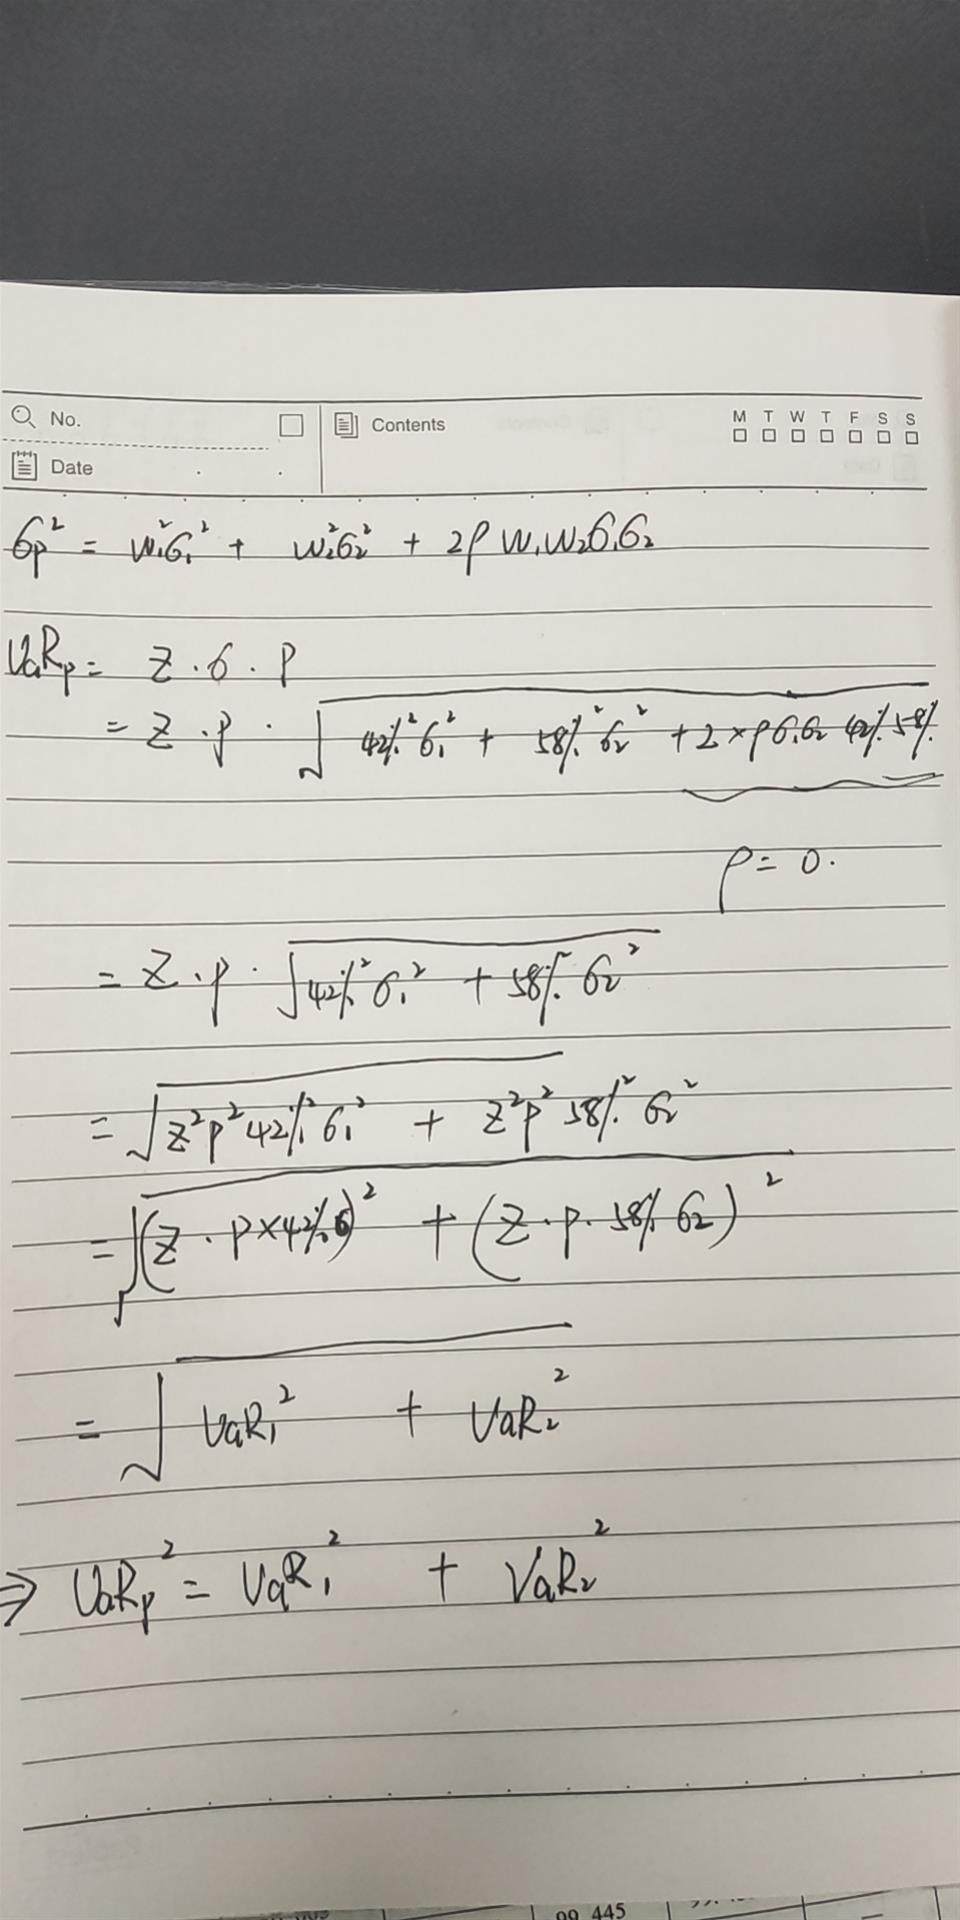 No.
Contents
M T W T F S S
Date
σp² = w₁²σ₁² + w₂²σ₂² + 2ρ w₁w₂σ₁σ₂
VaRp = Z · σ · P
= Z · P · √(42%²σ₁² + 58%²σ₂² + 2×ρσ₁σ₂ 42% 58%)
ρ = 0.
= Z · P · √(42%²σ₁² + 58%²σ₂²)
= √(Z²P²42%²σ₁² + Z²P²58%²σ₂²)
= √((Z · P×42%σ)² + (Z · P · 58%σ₂)²)
= √(VaR₁² + VaR₂²)
⇒ VaRp² = VaR₁² + VaR₂²
99.445